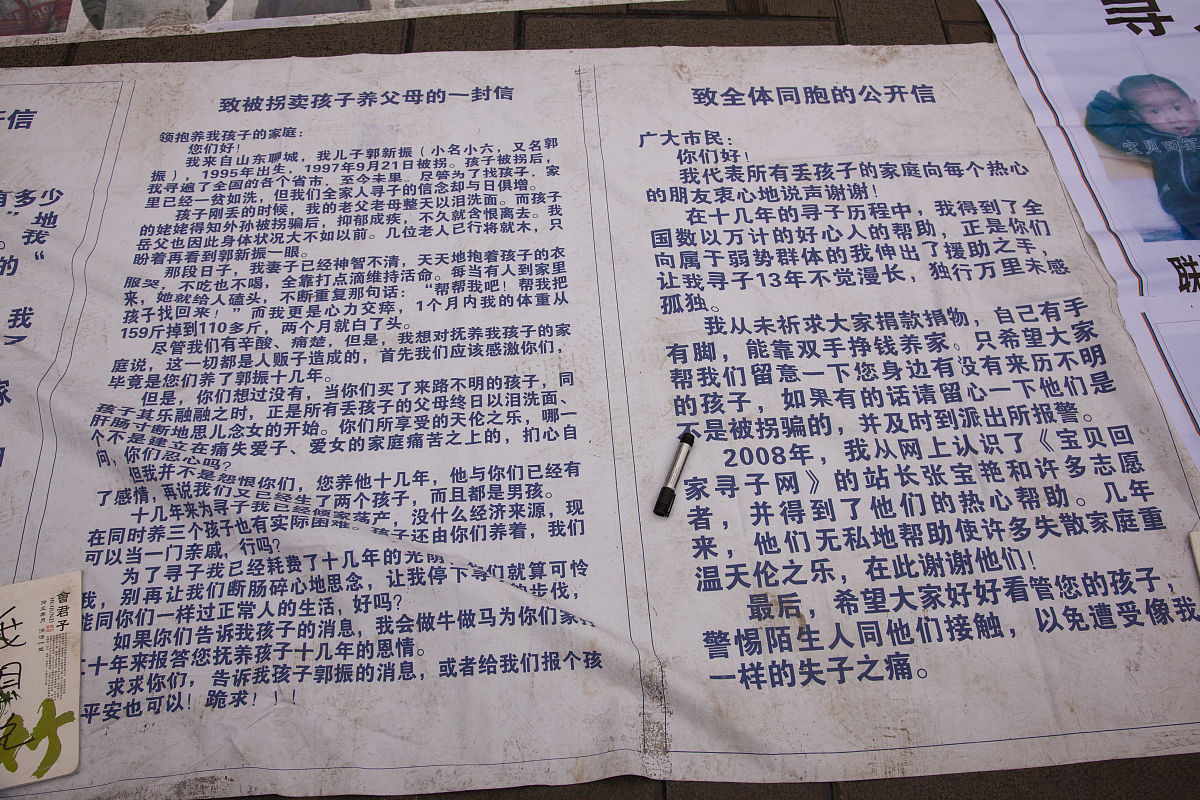 开信
有多少
”地
。我
的“
我
家
致被拐卖孩子养父母的一封信
领抱养我孩子的家庭：
您们好！
我来自山东聊城，我儿子郭新振（小名小六，又名郭
振），1995年出生，1997年9月21日被拐。孩子被拐后，
我寻遍了全国的各个省市，至今未里。尽管为了找孩子，家
里已经一贫如洗，但我们全家人寻子的信念却与日俱增。
孩子刚丢的时候，我的老父老母整天以泪洗面。而孩子
的姥姥得知外孙被拐骗后，抑郁成疾，不久就含恨离去。我
岳父也因此身体状况大不如以前。几位老人已行将就木，只
盼着再看到郭新振一眼。
那段日子，我妻子已经神智不清，天天地抱着孩子的衣
服哭，不吃也不喝，全靠打点滴维持活命。每当有人到家里
来，她就给人磕头，不断重复那句话：“帮帮我吧！帮我把
孩子找回来！”而我更是心力交瘁，1个月内我的体重从
159斤掉到110多斤，两个月就白了头。
尽管我们有辛酸、痛楚，但是，我想对抚养我孩子的家
庭说，这一切都是人贩子造成的，首先我们应该感激你们，
毕竟是您们养了郭振十几年。
但是，你们想过没有，当你们买了来路不明的孩子，同
孩子其乐融融之时，正是所有丢孩子的父母终日以泪洗面、
肝肠寸断地思儿念女的开始。你们所享受的天伦之乐，哪一
个不是建立在痛失爱子、爱女的家庭痛苦之上的，扪心自
问，你们忍心吗？
但我并不是怨恨你们，您养他十几年，他与你们已经有
了感情，再说我们又已经生了两个孩子，而且都是男孩。
十几年来为寻子我已经倾家荡产，没什么经济来源，现
在同时养三个孩子也有实际困难。孩子还由你们养着，我们
可以当一门亲戚，行吗？
为了寻子我已经耗费了十几年的光阴，你们就算可怜
我，别再让我们断肠碎心地思念，让我停下寻子的步伐，
能同你们一样过正常人的生活，好吗？
如果你们告诉我孩子的消息，我会做牛做马为你们家
二十年来报答您抚养孩子十几年的恩情。
求求你们，告诉我孩子郭振的消息，或者给我们报个孩
平安也可以！跪求！！！
致全体同胞的公开信
广大市民：
你们好！
我代表所有丢孩子的家庭向每个热心
的朋友衷心地说声谢谢！
在十几年的寻子历程中，我得到了全
国数以万计的好心人的帮助，正是你们
向属于弱势群体的我伸出了援助之手，
让我寻子13年不觉漫长，独行万里未感
孤独。
我从未祈求大家捐款捐物，自己有手
有脚，能靠双手挣钱养家。只希望大家
帮我们留意一下您身边有没有来历不明
的孩子，如果有的话请留心一下他们是
不是被拐骗的，并及时到派出所报警。
2008年，我从网上认识了《宝贝回
家寻子网》的站长张宝艳和许多志愿
者，并得到了他们的热心帮助。几年
来，他们无私地帮助使许多失散家庭重
温天伦之乐，在此谢谢他们！
最后，希望大家好好看管您的孩子，
警惕陌生人同他们接触，以免遭受像我
一样的失子之痛。
寻
宝贝回家
联
會君子
竹